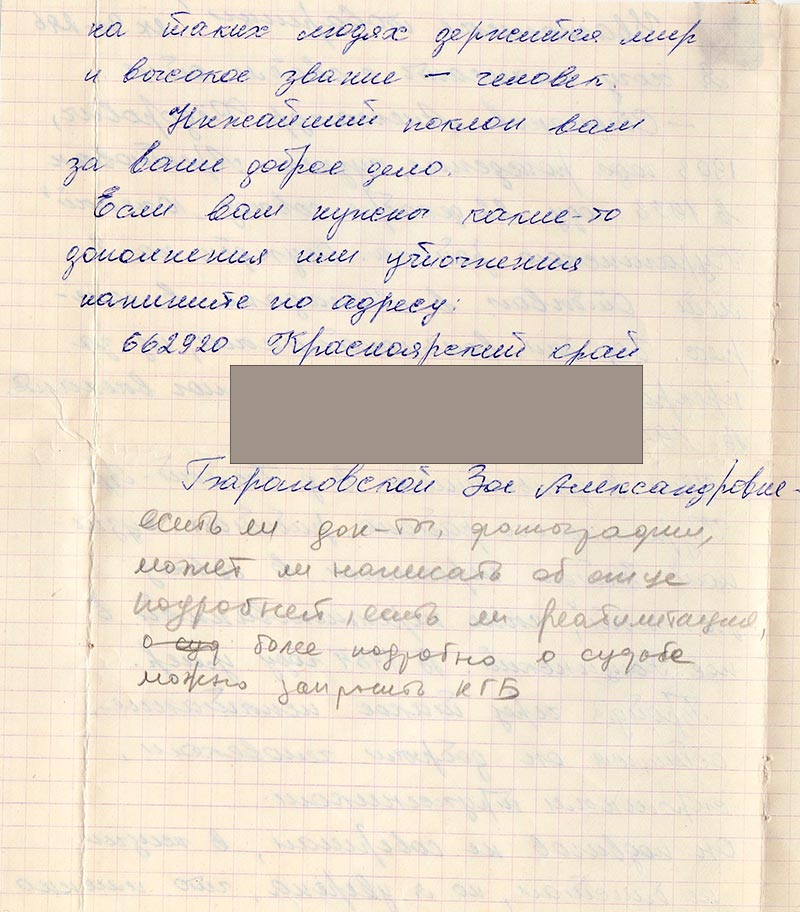 на таких людях держится мир
и высокое звание – человек.
Нижайший поклон вам
за ваше доброе дело.
Если вам нужны какие-то
дополнения или уточнения
напишите по адресу:
662920 Красноярский край
Барановской Зое Александровне-
есть ли док-ты, фотографии,
может ли написать об отце
подробней, есть ли реабилитация,
о суд более подробно о судьбе
можно запросить КГБ